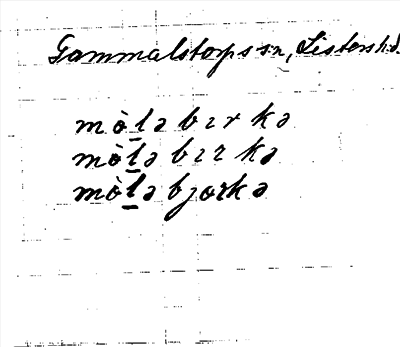 Gammalstorps sn, Listers hd.
mòl̲ə bɪrkə
mòl̲ə bɪrkə
mòl̲ə bjɑrkə